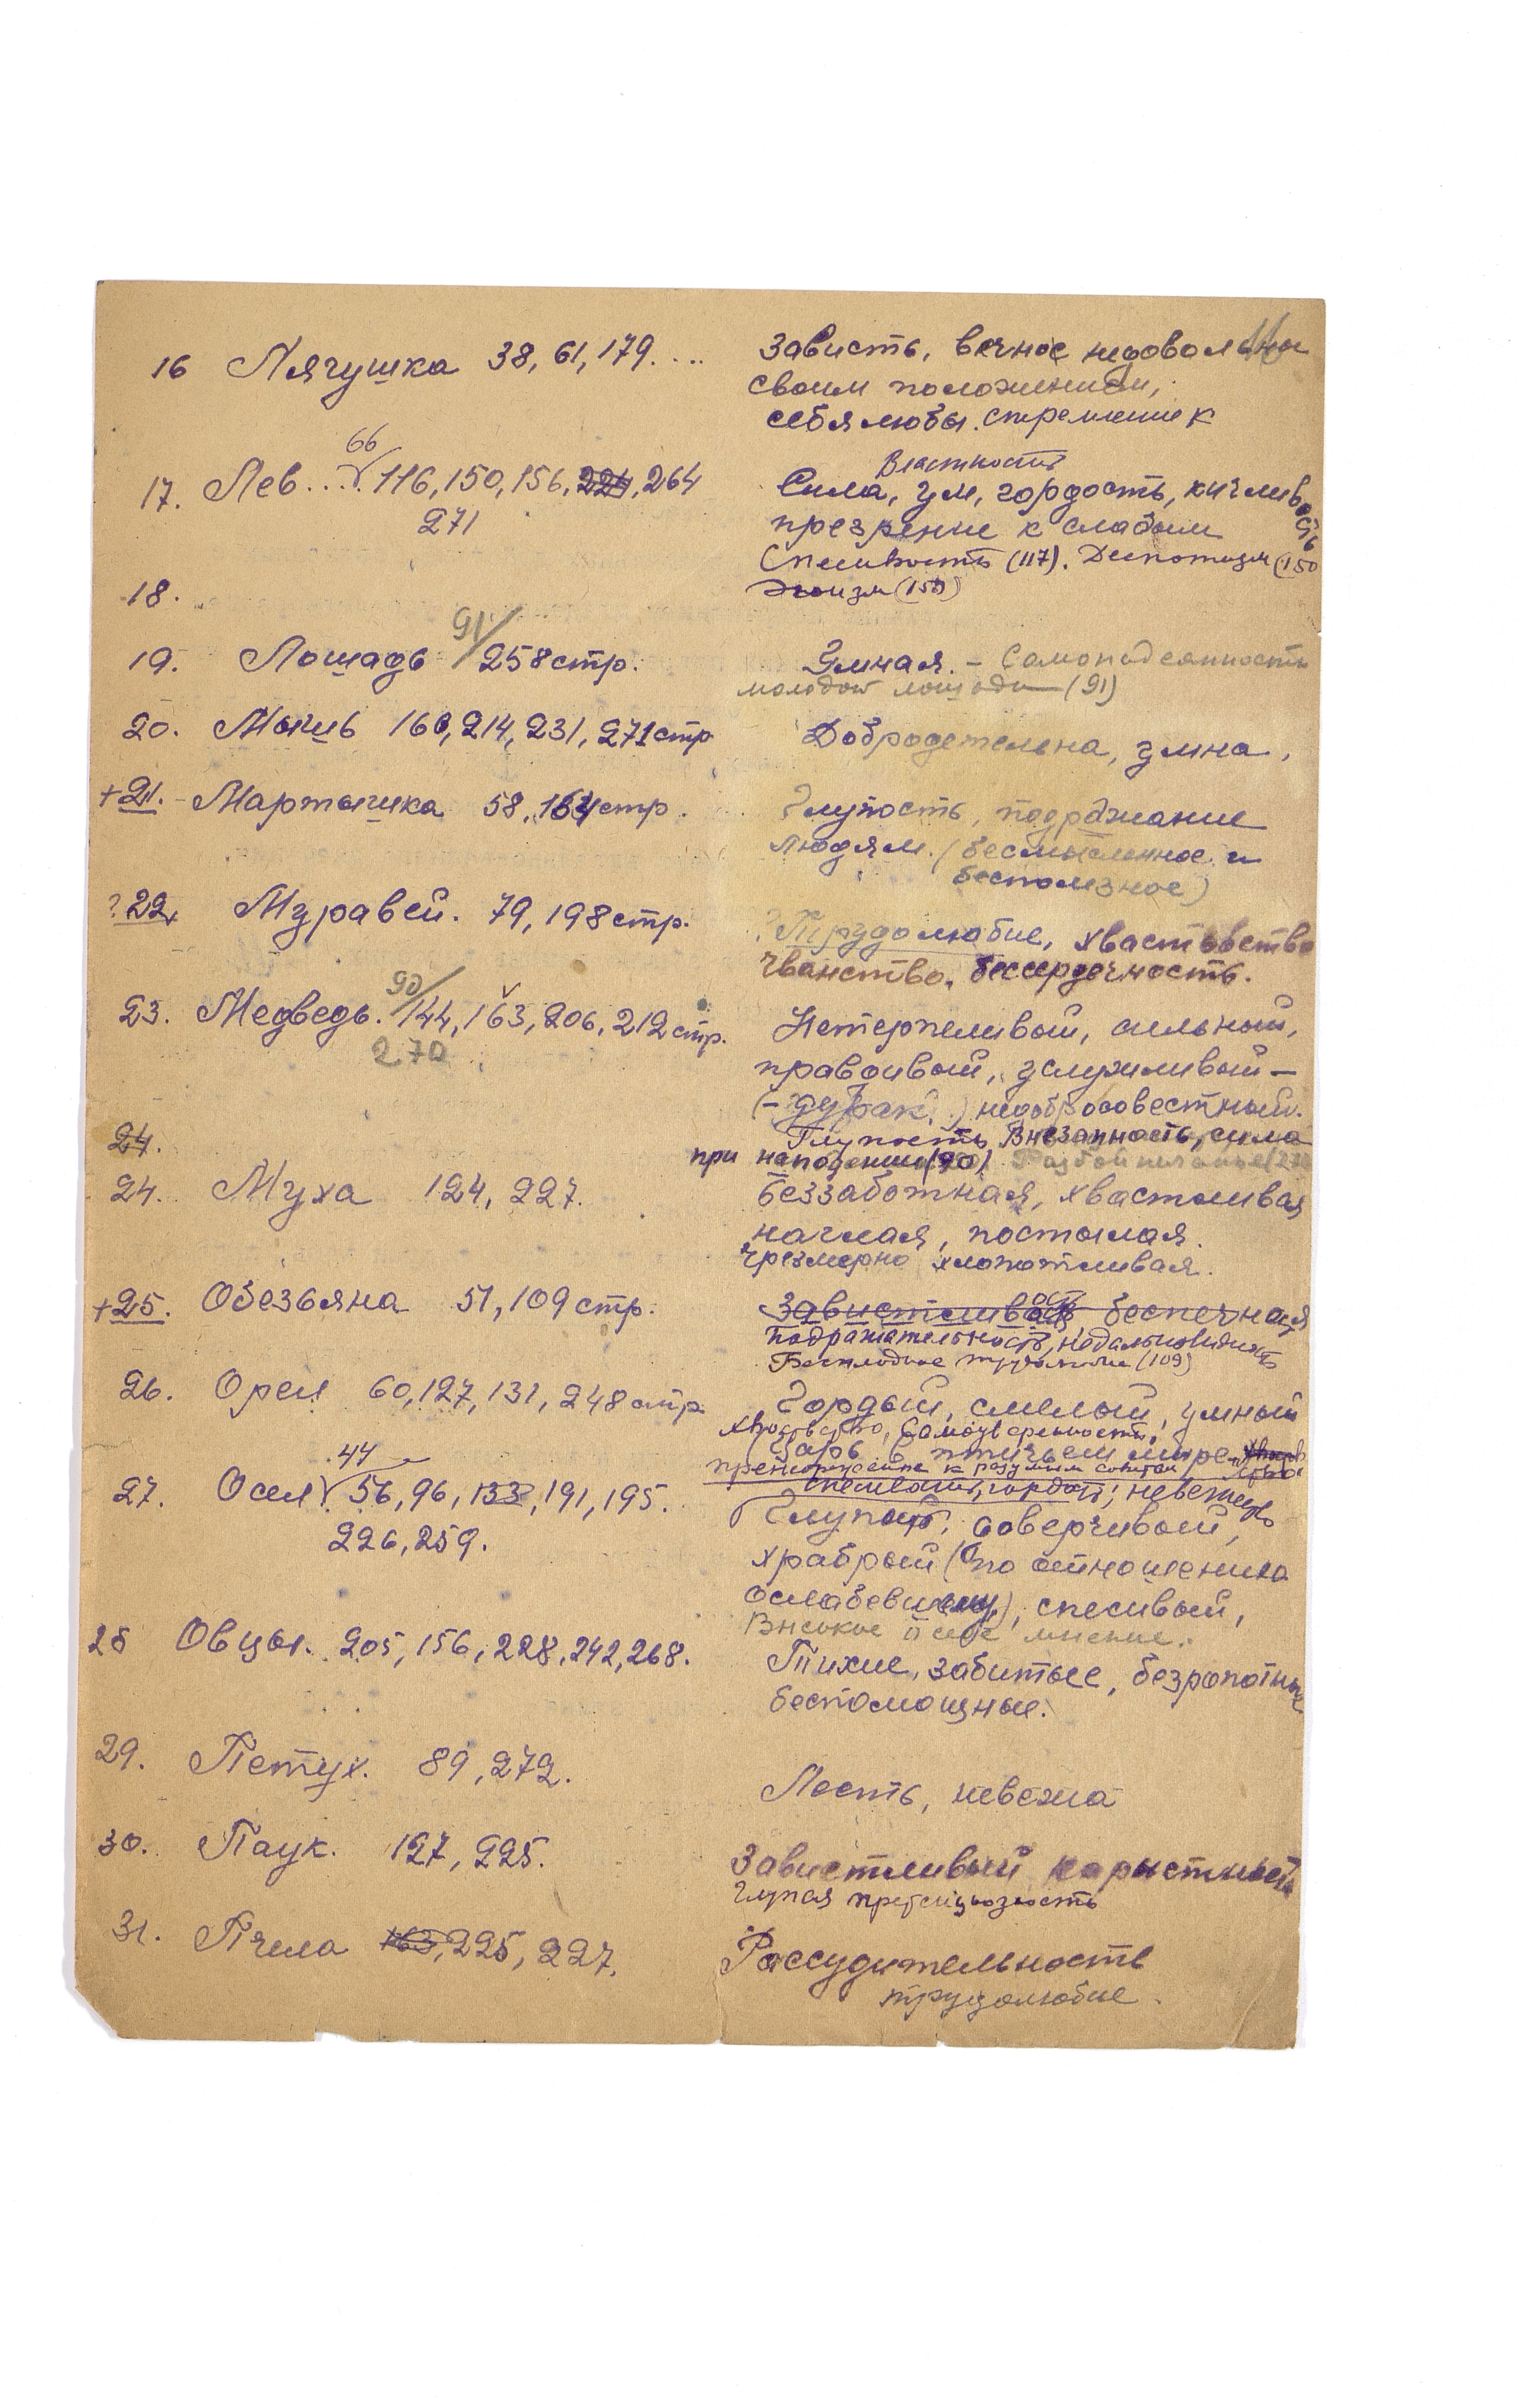 16 Лягушка 38, 61, 179. ... Зависть, вечное недовольна
своим положением,
себялюбы. стремление к
66 Властность
17. Лев... 116, 150, 156, 224, 264 Сила, ум, гордость, кичливость
271 презрение к слабым
Спесивость (117). Деспотизм (150
Эгоизм (150)
18.
91/
19. Лошадь 258 стр. Умная. – Самонадеянность
молодой лошади (91)
20. Мышь 160, 214, 231, 271 стр Добродетельна, умна,
+ 21. Мартышка 58, 164 стр. Глупость, подражание
людям. (бесмысленное и
бесполезное)
? 22. Муравей. 79, 198 стр. ? Трудолюбие, хвастовство
чванство. бессердечность.
90/
23. Медведь. 144, 163, 206, 212 стр. Нетерпеливый, сильный,
270 правдивый, услужливый –
(– дурак.) недобросовестный.
24. Глупость, Внезапность, сила
при нападении (90)
24. Муха 124, 227. Беззаботная, хвастливая
наглая, постылая.
Чрезмерно хлопотливая.
+ 25. Обезьяна 51, 109 стр. Завистливость беспечная
Подражательность, недальновидность
Бесплодное трудолюбие (109)
26. Орел 60, 127, 131, 248 стр Гордый, смелый, умный
Хвостовство, Самоуверенность,
(Царь в птичьем мире
44 пренебрежение к разумным советам
27. Осел 56, 96, 133, 191, 195. спесивость, гордость; невежда
226, 259. Глупый, доверчивый,
храбрый (по отношению
ослабевшему), спесивый,
Высокое о себе мнение.
28 Овцы. 205, 156, 228, 242, 268. Тихие, забитые, безропотные
беспомощные.
29. Петух. 89, 272. Лесть, невежа
30. Паук. 127, 225. Завистливый корыстность
Глупая претенциозность
31. Пчела 163, 225, 227. Рассудительность
трудолюбие.